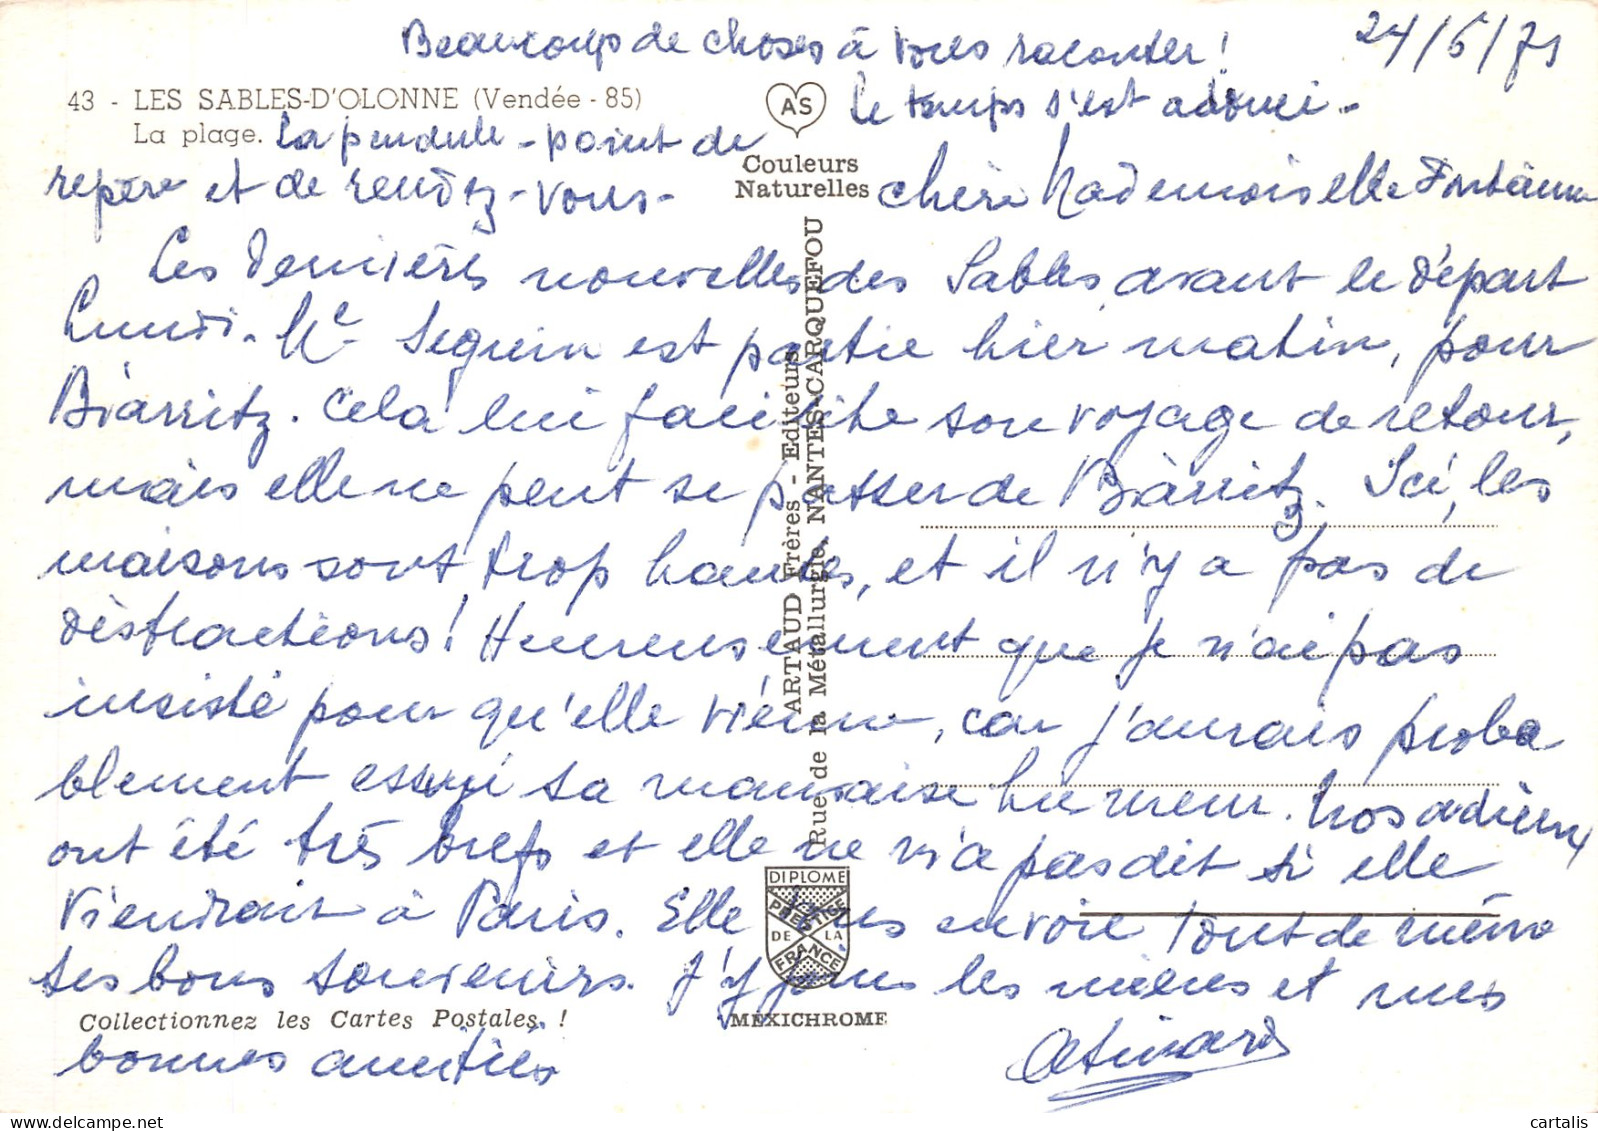 Beaucoup de choses à vous raconter !
24/5/71
43 - LES SABLES-D'OLONNE (Vendée - 85)
La plage.
La pendule - point de
repère et de rendez-vous -
AS
Couleurs
Naturelles
Le temps s'est adouci -
Chère Mademoiselle
Les dernières nouvelles des Sables avant le départ
Lundi. Me Seguin est partie hier matin, pour
Biarritz. Cela lui facilite son voyage de retour,
mais elle ne peut se passer de Biarritz. Ici, les
maisons sont trop hautes, et il n'y a pas de
distractions ! Heureusement que je n'ai pas
insisté pour qu'elle vienne, car j'aurais proba
blement essuyé sa mauvaise humeur. Nos adieux
ont été très brefs et elle ne m'a pas dit si elle
viendrait à Paris. Elle vous envoie tout de même
ses bons souvenirs. J'y joins les miens et mes
bonnes amitiés
ARTAUD Frères - Editeurs
Rue de la Métallurgie, NANTES-CARQUEFOU
DIPLOME
PRESTIGE
DE LA
FRANCE
MEXICHROME
Collectionnez les Cartes Postales. !
cartalis